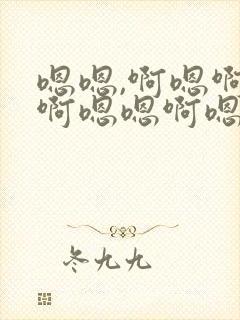 嗯嗯,啊嗯啊
啊嗯嗯啊嗯
冬九九